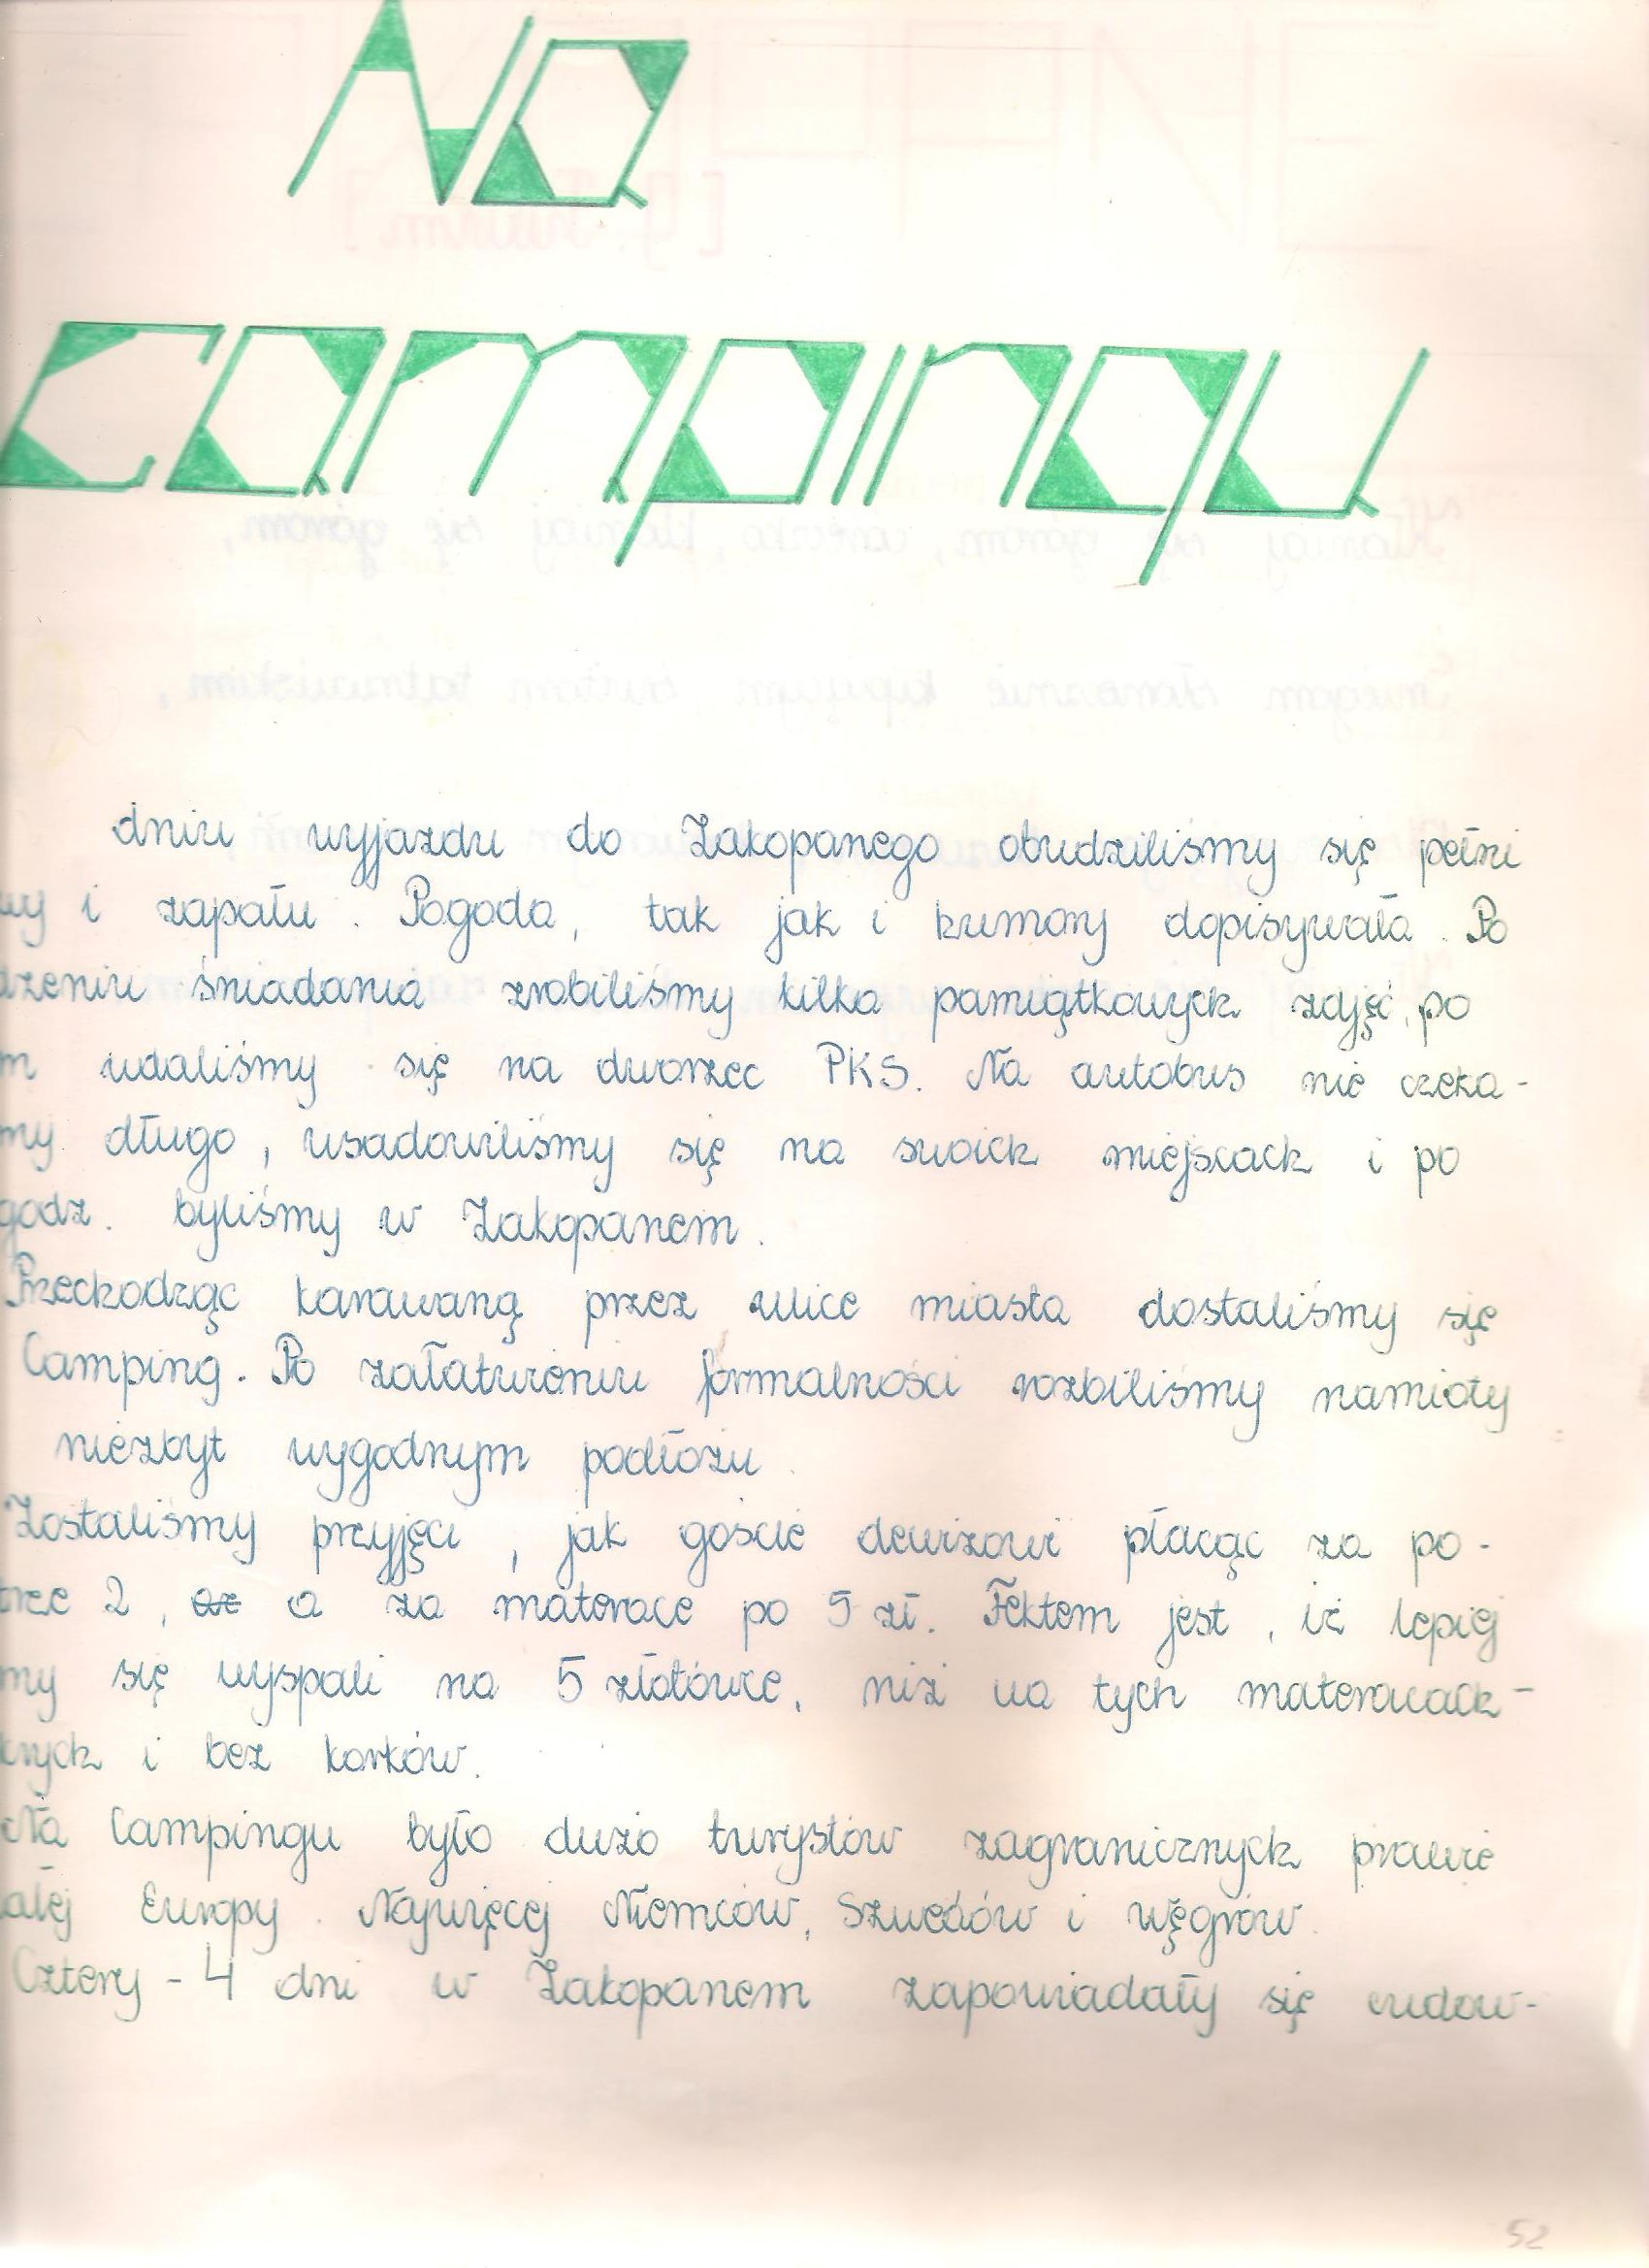 Na
campingu
dniu wyjazdu do Zakopanego obudziliśmy się pełni
wy i zapału. Pogoda, tak jak i humory dopisywała. Po
dzeniu śniadania zrobiliśmy kilka pamiątkowych zdjęć, po
m udaliśmy się na dworzec PKS. Na autobus nie czeka-
my długo, usadowiliśmy się na swoich miejscach i po
godz. byliśmy w Zakopanem.
Przechodząc karawaną przez ulice miasta dostaliśmy się
Camping. Po załatwieniu formalności rozbiliśmy namioty
niezbyt wygodnym podłożu.
Zostaliśmy przyjęci, jak goście dewizowi płacąc za po-
trze 2, a za materace po 5 zł. Fektem jest, iż lepiej
my się wyspali na 5 złotówce, niż na tych materacach-
krych i bez korków.
Na Campingu było dużo turystów zagranicznych prawie
ałej Europy. Najwięcej Niemców, Szwedów i węgrów.
Cztery - 4 dni w Zakopanem zapowiadały się cudow-
52